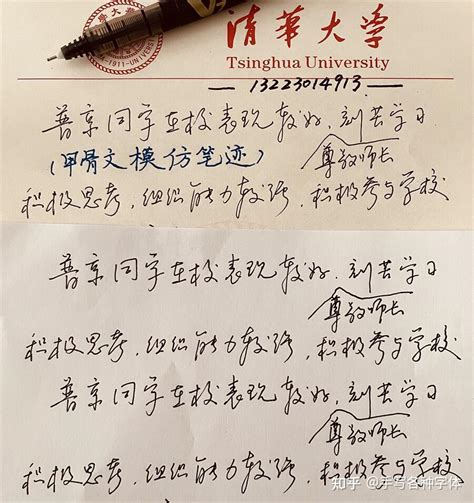 清華大学
Tsinghua University
-1911-UNIVER
—13223014913—
普京同学在校表现较好,刻苦学习
尊敬师长
(甲骨文模仿笔迹)
积极思考,组织能力较强,积极参与学校
普京同学在校表现较好,刻苦学习
尊敬师长
积极思考,组织能力较强,积极参与学校
普京同学在校表现较好,刻苦学习
尊敬师长
积极思考,组织能力较强,积极参与学校
知乎 @手写各种字体